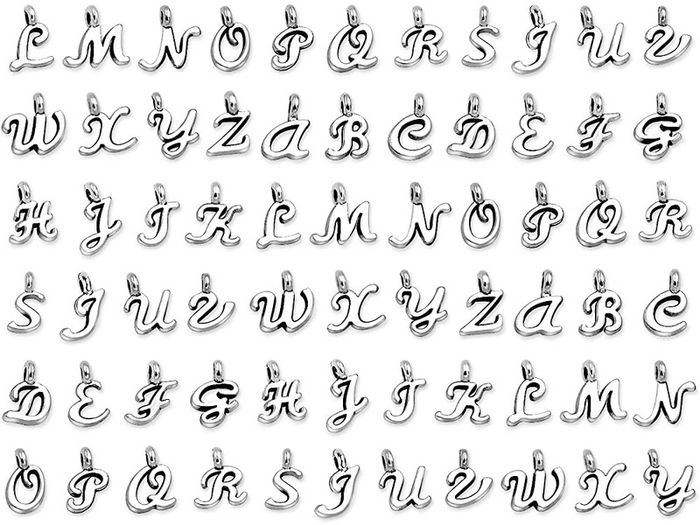 L M N O P Q R S T U V
W X Y Z A B C D E F G
H I J K L M N O P Q R
S T U V W X Y Z A B C
D E F G H I J K L M N
O P Q R S T U V W X Y